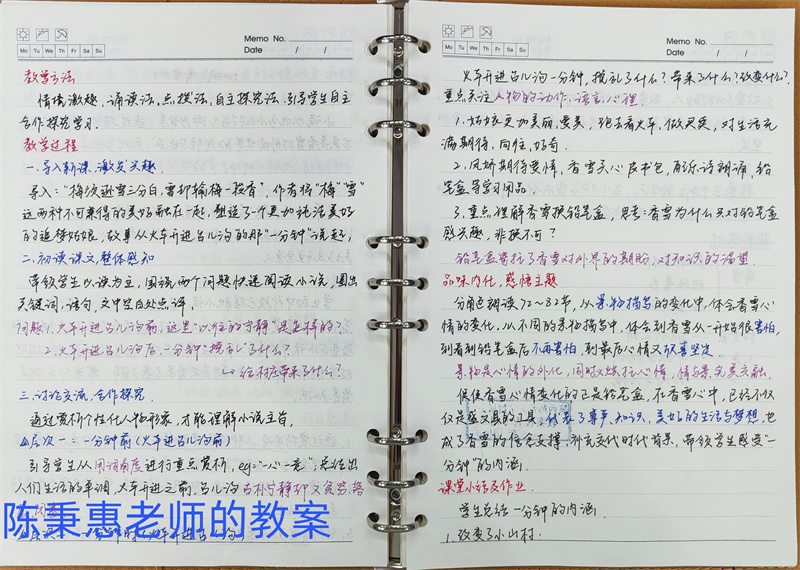 Memo No.
Mo Tu We Th Fr Sa Su
Date / /
教学方法
情境激趣、诵读法、点拨法、自主探究法、引导学生自主
合作探究学习.
教学过程
一.导入新课,激发兴趣.
导入:"梅须逊雪三分白,雪却输梅一段香",作者将"梅""雪"
这两种不可兼得的美好融在一起,塑造了一个更加纯洁美好
的追梦姑娘,故事从火车开进台儿沟的那"一分钟"说起.
二.初读课文,整体感知
带领学生以读为主,围绕两个问题快速阅读小说,圈出
关键词、语句,文中空白处点评.
问题1.火车开进台儿沟前,这里"以往的宁静"是怎样的?
2.火车开进台儿沟后,一分钟"搅乱"了什么?
给村庄带来了什么?
三.讨论交流,合作探究.
通过赏析个性化人物形象,才能理解小说主旨.
△层次一:一分钟前(火车开进台儿沟前)
引导学生从用词角度进行重点赏析,eg:"一心一意",总结出
人们生活的单调,火车开进之前,台儿沟古朴宁静却又贫穷、落
陈秉惠老师的教案
Memo No.
Mo Tu We Th Fr Sa Su
Date / /
火车开进台儿沟一分钟,搅乱了什么?带来了什么?改变什么?
重点关注人物的动作、语言、心理
1.姑娘更加美丽,要美,跑去看火车,做买卖,对生活充
满期待,向往,好奇.
2.凤娇期待爱情,香雪关心皮书包,配乐诗朗诵,铅
笔盒等学习用品
3.重点理解香雪换铅笔盒,思考:香雪为什么只对铅笔盒
感兴趣,非换不可?
铅笔盒寄托了香雪对外界的期盼,对知识的渴望
品味内化,感悟主题
分角色朗读72~82节,从景物描写的变化中,体会香雪心
情的变化.从不同的景物描写中,体会到香雪从一开始很害怕,
到看到铅笔盒后不再害怕,到最后心情又欣喜坚定.
景物是心情的外化,同时又烘托心情,情与景完美交融.
促使香雪心情变化的正是铅笔盒,在香雪心中,已经不仅
仅是盛文具的工具,代表了尊严、知识、美好的生活与梦想,也
成了香雪的信念支撑.补充交代时代背景,带领学生感受"一
分钟"的内涵.
课堂小结及作业.
学生总结一分钟的内涵.
1.改变了小山村.